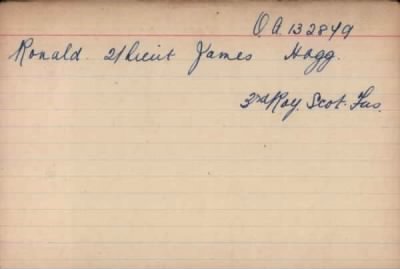 O.A.132849
Ronald. 2/Lieut James Hogg.
3rd Roy. Scot. Fus.